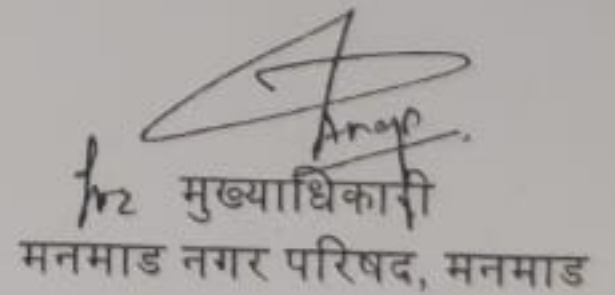 for मुख्याधिकारी
मनमाड नगर परिषद, मनमाड